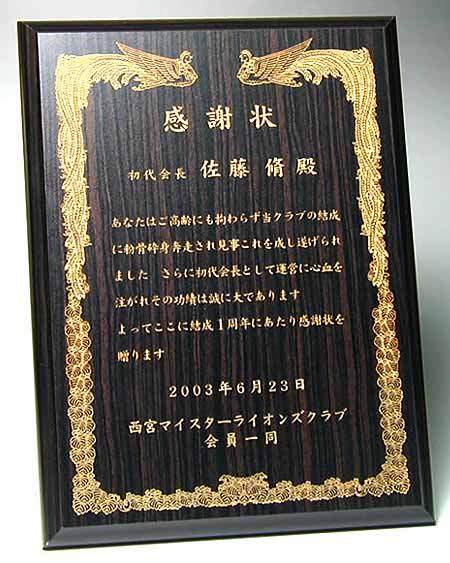 感謝状
初代会長 佐藤 脩 殿
あなたはご高齢にも拘わらず当クラブの結成
に粉骨砕身奔走され見事これを成し遂げられ
ました さらに初代会長として運営に心血を
注がれその功績は誠に大であります
よってここに結成1周年にあたり感謝状を
贈ります
2003年6月23日
西宮マイスターライオンズクラブ
会員一同